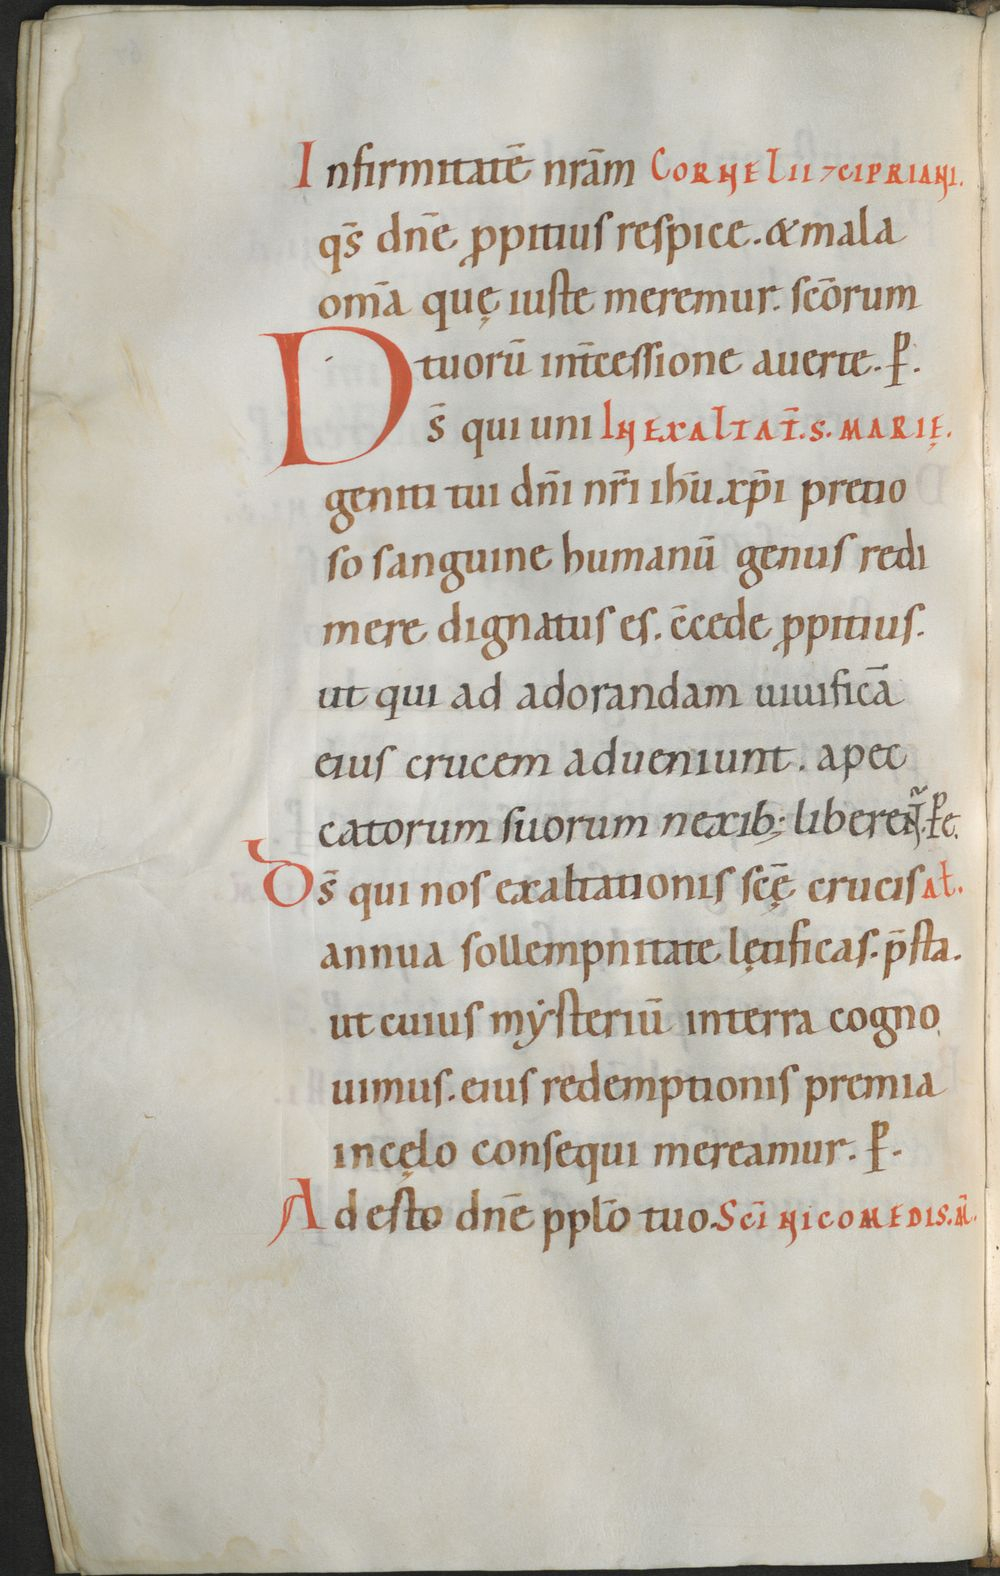 Infirmitatē nrām CORNELII ⁊ CIPRIANI.
qs̄ dn̄e ꝓpitius respice. & mala
om̄a quę iuste meremur. scōrum
tuorū int̄cessione auerte. P̲.
Ds̄ qui uni IN EXALTAT̄. S. MARIĘ.
geniti tui dn̄i nr̄i ihū. xp̄i pretio
so sanguine humanū genus redi
mere dignatus es. c̄cede ꝓpitius.
ut qui ad adorandam uiuificā
eius crucem adueniunt. a pec
catorum suorum nexib; liberen̄t.
Ds̄ qui nos exaltationis scę̄ crucis AŁ.
annua sollempnitate lętificas. p̄sta.
ut cuius mẏsteriū in terra cogno
uimus. eius redemptionis premia
in cęlo consequi mereamur. P̲.
Adesto dn̄e pplō tuo. SCĪ NICOMEDIS. M̄.